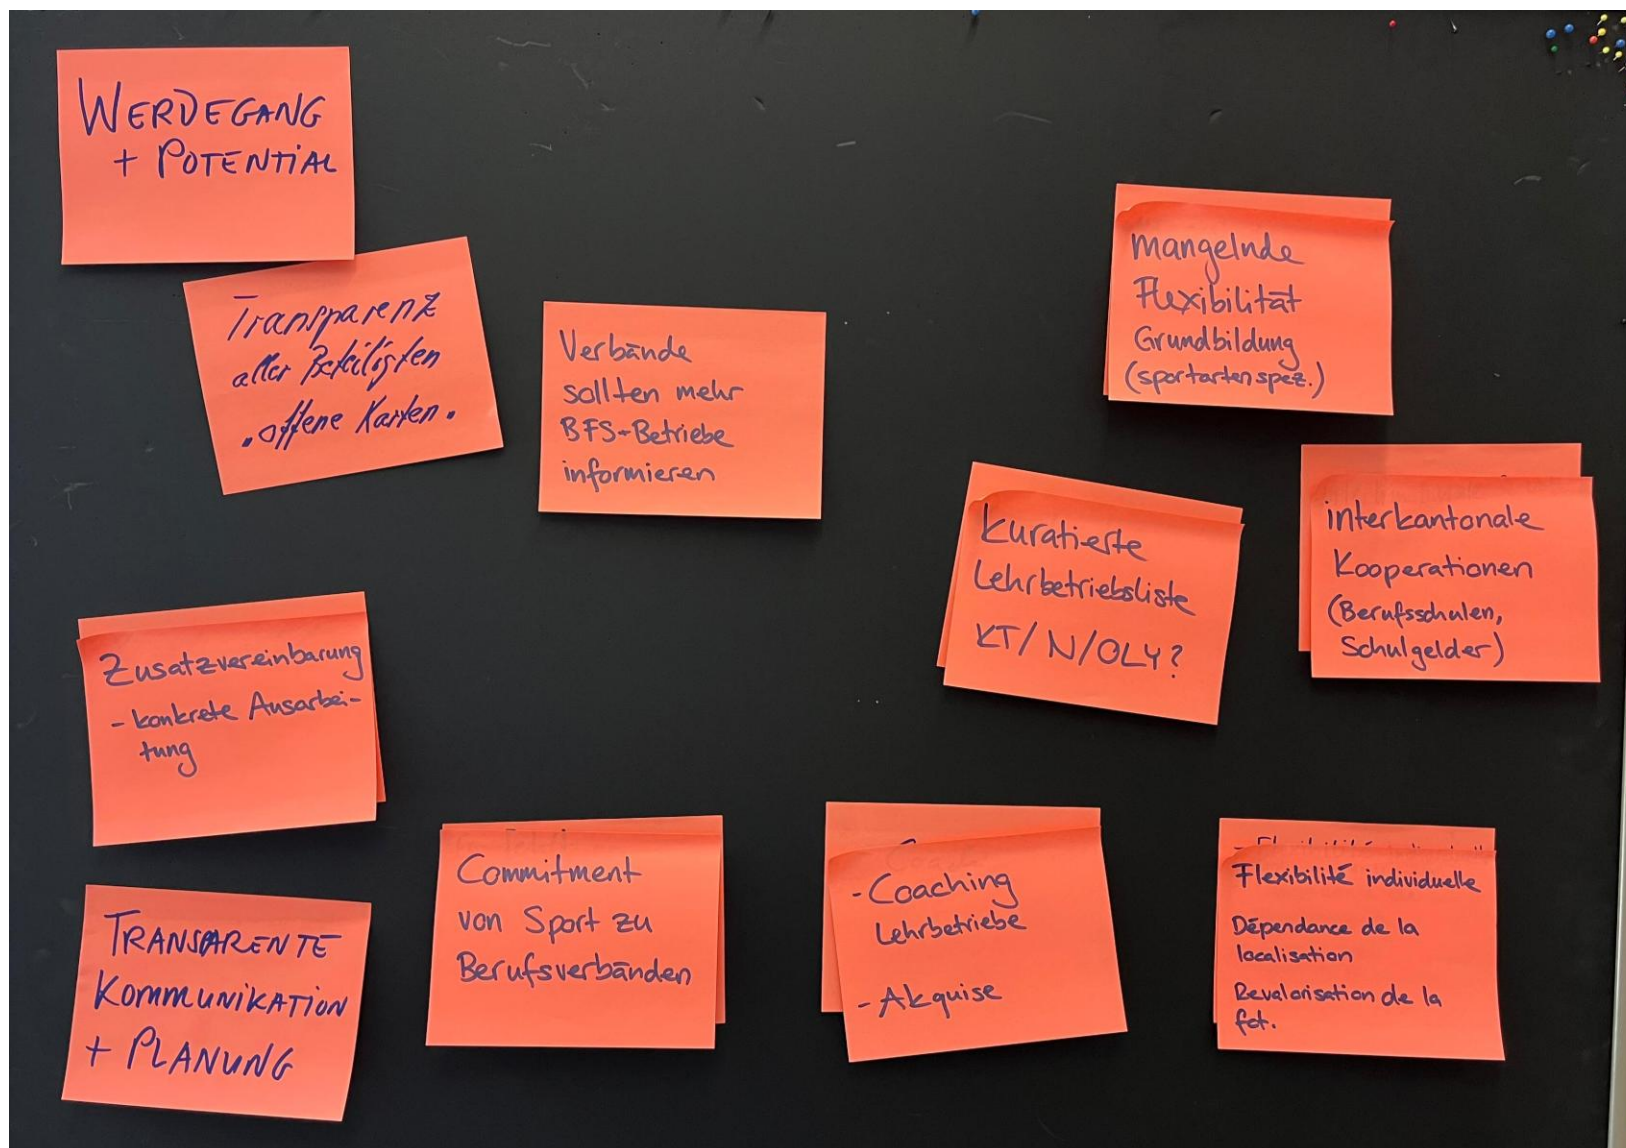 WERDEGANG
+ POTENTIAL
Transparenz
aller Beteiligten
"offene Karten"
Verbände
sollten mehr
BFS-Betriebe
informieren
mangelnde
Flexibilität
Grundbildung
(sportartenspez.)
kuratierte
Lehrbetriebsliste
KT/N/OLY?
interkantonale
Kooperationen
(Berufsschulen,
Schulgelder)
Zusatzvereinbarung
- konkrete Ausarbei-
tung
TRANSPARENTE
KOMMUNIKATION
+ PLANUNG
Commitment
von Sport zu
Berufsverbänden
- Coaching
Lehrbetriebe
- Akquise
Flexibilité individuelle
Dépendance de la
localisation
Revalorisation de la
fot.